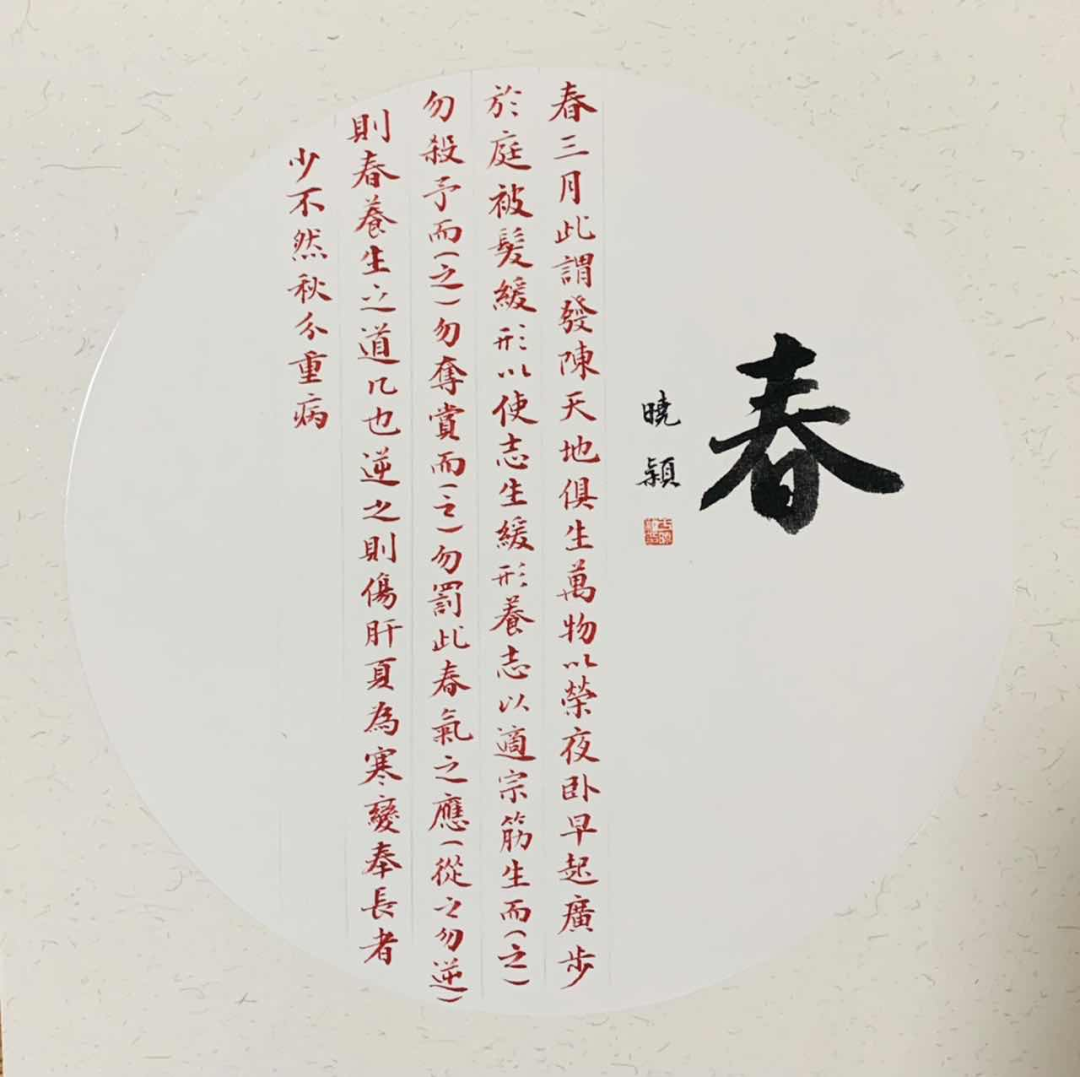 春
曉穎
春三月此謂發陳天地俱生萬物以榮夜卧早起廣步
於庭被髮緩形以使志生緩形養志以適宗筋生而(之)
勿殺予而(之)勿奪賞而(之)勿罰此春氣之應(從之勿逆)
則春養生之道几也逆之則傷肝頁為寒變奉長者
少不然秋分重病